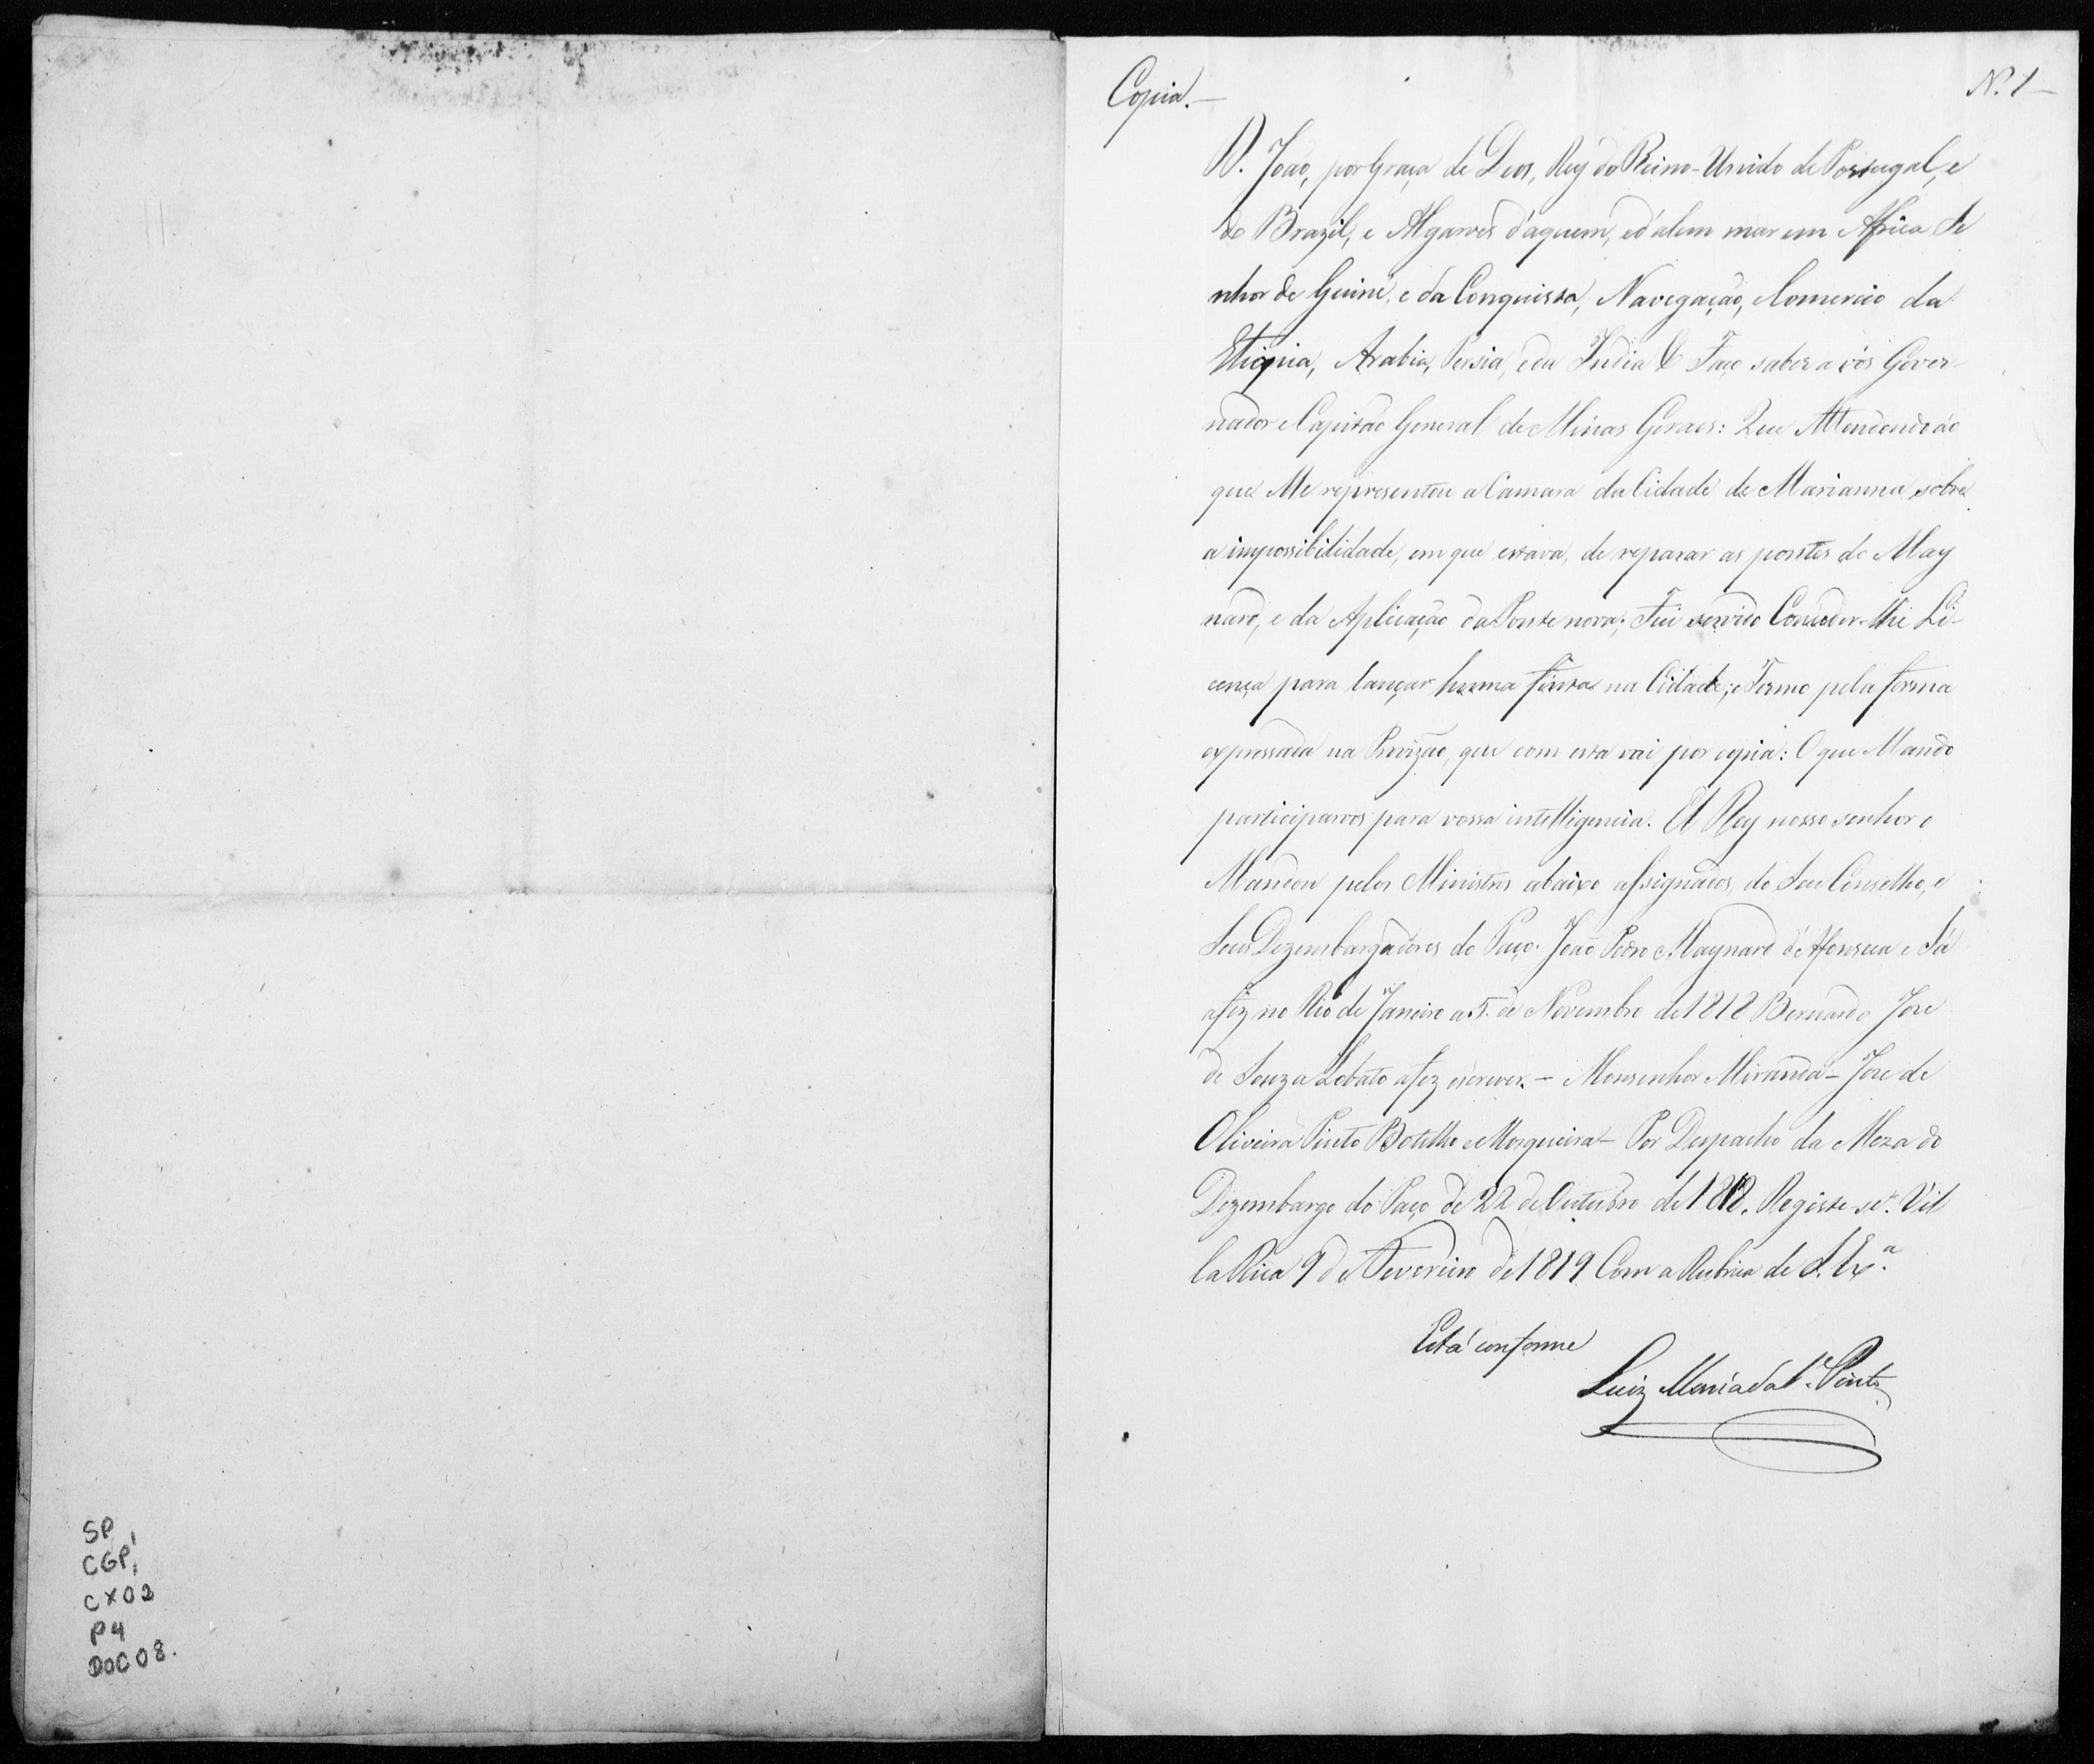 SP,
CGP,
CX02
P4
DOC 08.
Copia. —
N.º 1 —
D. João, por Graça de Deos, Rey do Reino-Unido de Portugal, e
do Brazil, e Algarves d'aquem, e d'alem mar em Africa Se
nhor de Guiné, e da Conquista, Navegação, Comercio da
Etiopia, Arabia, Persia, e da India &. Faço saber a vós Gover
nador e Capitão General de Minas Geraes: Que Attendendo ao
que Me representou a Camara da Cidade de Marianna sobre
a impossibilidade, em que estava, de reparar as pontes do May
nard, e da Aplicação da Ponte nova; Fui servido Conceder-lhe Li-
cença para lançar huma finta na Cidade, e Termo pela forma
expressada na Provizão, que com esta vai por copia: O que Mando
participarvos para vossa intelligencia. El Rey nosso senhor o
Mandou pelos Ministros abaixo assignados, do Seu Conselho, e
Seus Dezembargadores do Paço. João Pedro Maynard d'Afonseca e Sá
a fez no Rio de Janeiro a 5 de Novembro de 1818 Bernardo Jose
de Souza Lobato a fez escrever. — Monsenhor Miranda — Jose de
Oliveira Pinto Botelho e Mosqueira — Por Despacho da Meza do
Dezembargo do Paço de 22 de Outubro de 1818. Registe-se. Vil
la Rica 9 de Fevereiro de 1819 Com a Rubrica de S. Exª.
Está conforme
Luiz Maria da Sª Pinto